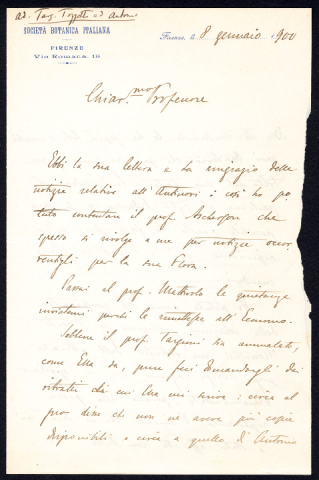 ad. Targ. Tozzetti ed Antonio
SOCIETÀ BOTANICA ITALIANA
FIRENZE
Via Romana, 19
Firenze, a 8 gennaio 1900
Chiar.mo Professore
Ebbi la sua lettera e La ringrazio delle
notizie relative all'Antinori: così ho po-
tuto contentare il prof. Ascherson che
spesso si rivolge a me per notizie occor-
rentigli per la sua Flora.
Passai al prof. Mattirolo le quietanze
inviatemi perché le rimettesse all'Economo.
Sebbene il prof. Targioni sia ammalato,
come Ella sa, pure feci domandargli dei
ritratti di cui Ella mi scrive: circa al
pro disse che non ne aveva più copie
disponibili e circa a quello di Antonio